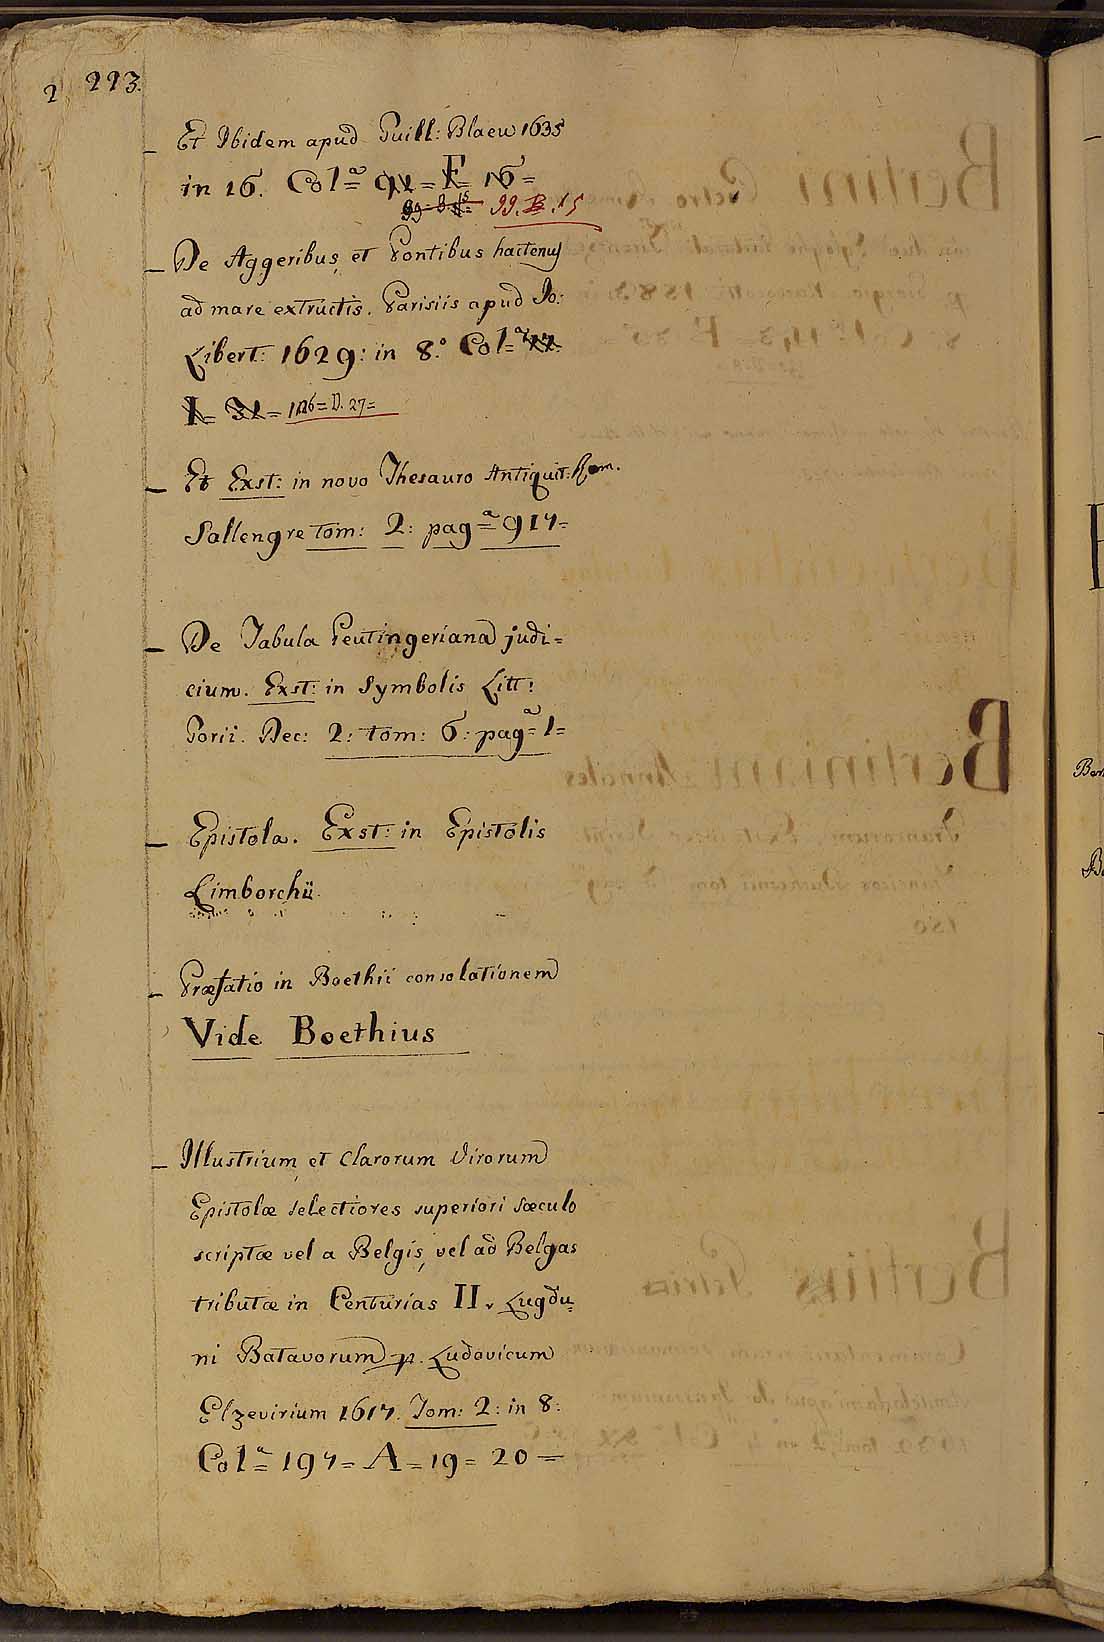 2 223.
Et Ibidem apud Guill: Blaeu 1635
in 16. Colª 91 = F = 16 =
99. B. 15
_ De Aggeribus et Pontibus hactenus
ad mare extructis. Parisiis apud Jo:
Libert: 1629: in 8.º Colª
I = 31 = 126 = D. 27 =
_ Et Exst: in novo Thesauro Antiquit: Rom.
Sallengre tom: 2: pagª 917 =
_ De Tabula Peutingeriana judi=
cium. Exst: in Symbolis Litt:
Gorii. Dec: 2: tom: 6: pagª 1 =
_ Epistola. Exst: in Epistolis
Limborchii
_ Præfatio in Boethii consolationem
Vide Boethius
_ Illustrium et Clarorum Virorum
Epistolæ selectiores superiori sæculo
scriptæ vel a Belgis, vel ad Belgas
tributæ in Centurias II. Lugdu=
ni Batavorum p. Ludovicum
Elzevirium 1617. Tom: 2: in 8:
Colª = 197 = A = 19 = 20 =